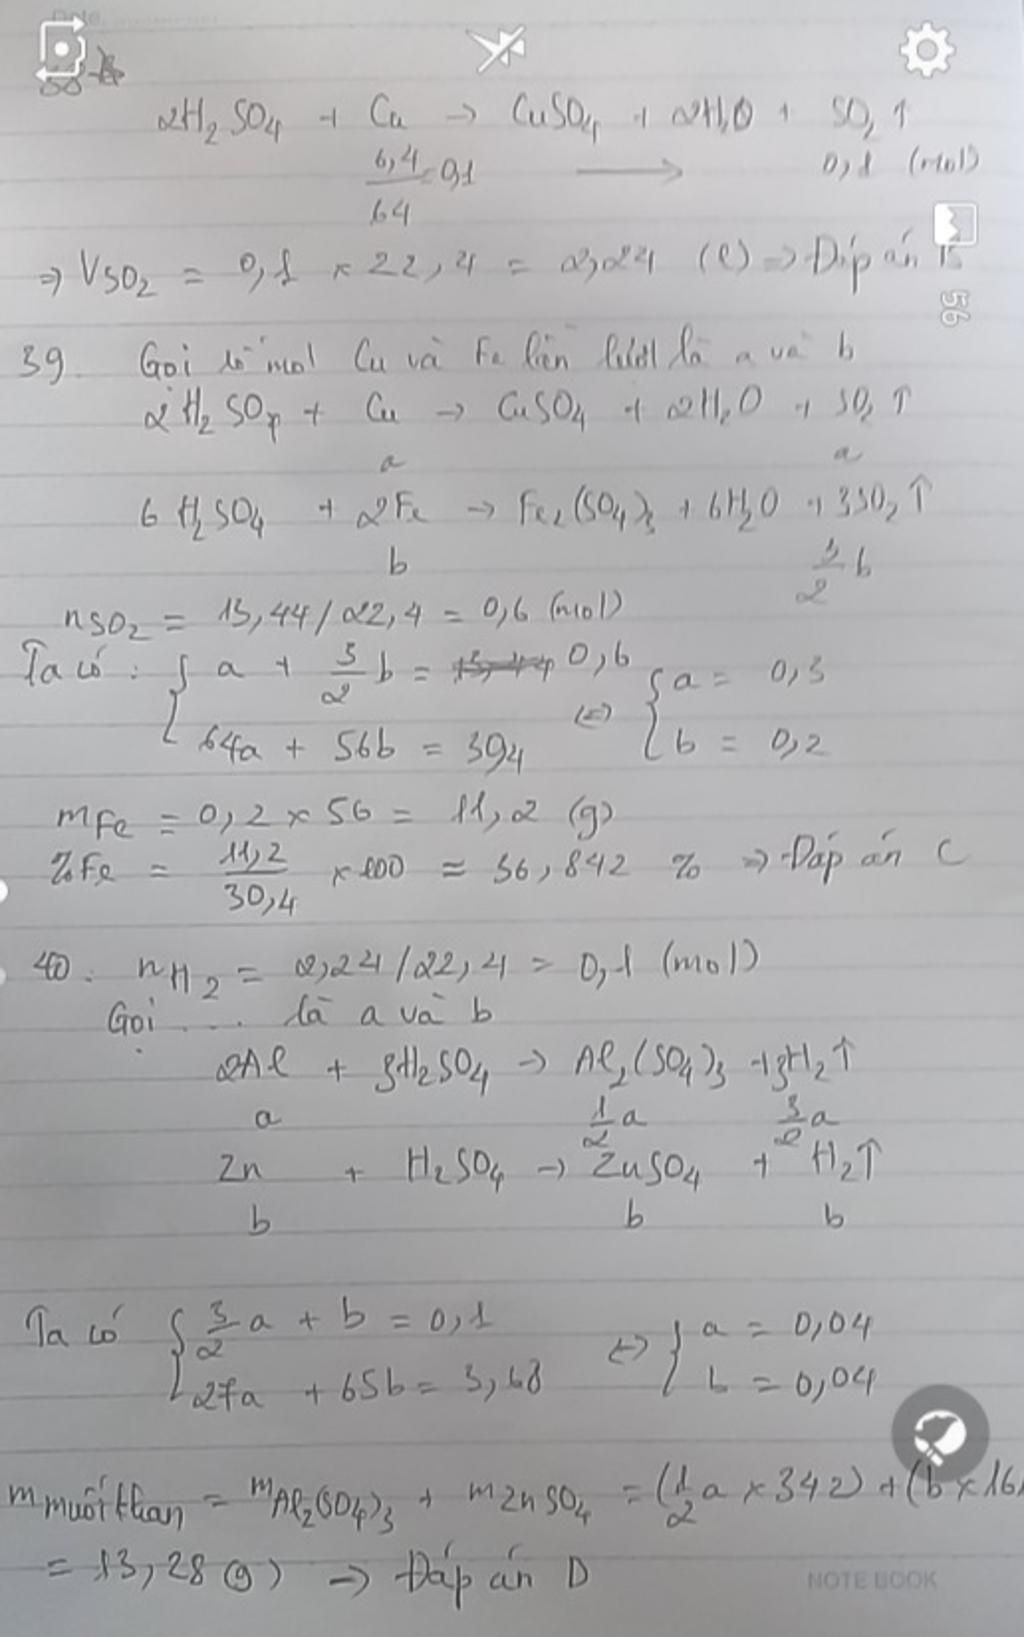 2H₂SO₄ + Cu → CuSO₄ + 2H₂O + SO₂ ↑
6,4/64 = 0,1 → 0,1 (mol)
⇒ V SO₂ = 0,1 × 22,4 = 2,24 (l) ⇒ Đáp án B
56
39. Gọi số mol Cu và Fe lần lượt là a và b
2H₂SO₄ + Cu → CuSO₄ + 2H₂O + SO₂ ↑
a a
6H₂SO₄ + 2Fe → Fe₂(SO₄)₃ + 6H₂O + 3SO₂ ↑
b 3/2 b
nSO₂ = 13,44/22,4 = 0,6 (mol)
Ta có: { a + 3/2 b = 0,6 ⇔ { a = 0,3
64a + 56b = 394 b = 0,2
mFe = 0,2 × 56 = 11,2 (g)
%Fe = 11,2/30,4 × 100 = 36,842 % ⇒ Đáp án C
40. nH₂ = 2,24/22,4 = 0,1 (mol)
Gọi .... là a và b
2Al + 3H₂SO₄ → Al₂(SO₄)₃ + 3H₂ ↑
a 1/2 a 3/2 a
Zn + H₂SO₄ → ZnSO₄ + H₂ ↑
b b b
Ta có { 3/2 a + b = 0,1 ⇔ { a = 0,04
27a + 65b = 3,68 b = 0,04
m muối khan = mAl₂(SO₄)₃ + mZnSO₄ = (1/2 a × 342) + (b × 16
= 13,28 (g) → Đáp án D
NOTE BOOK